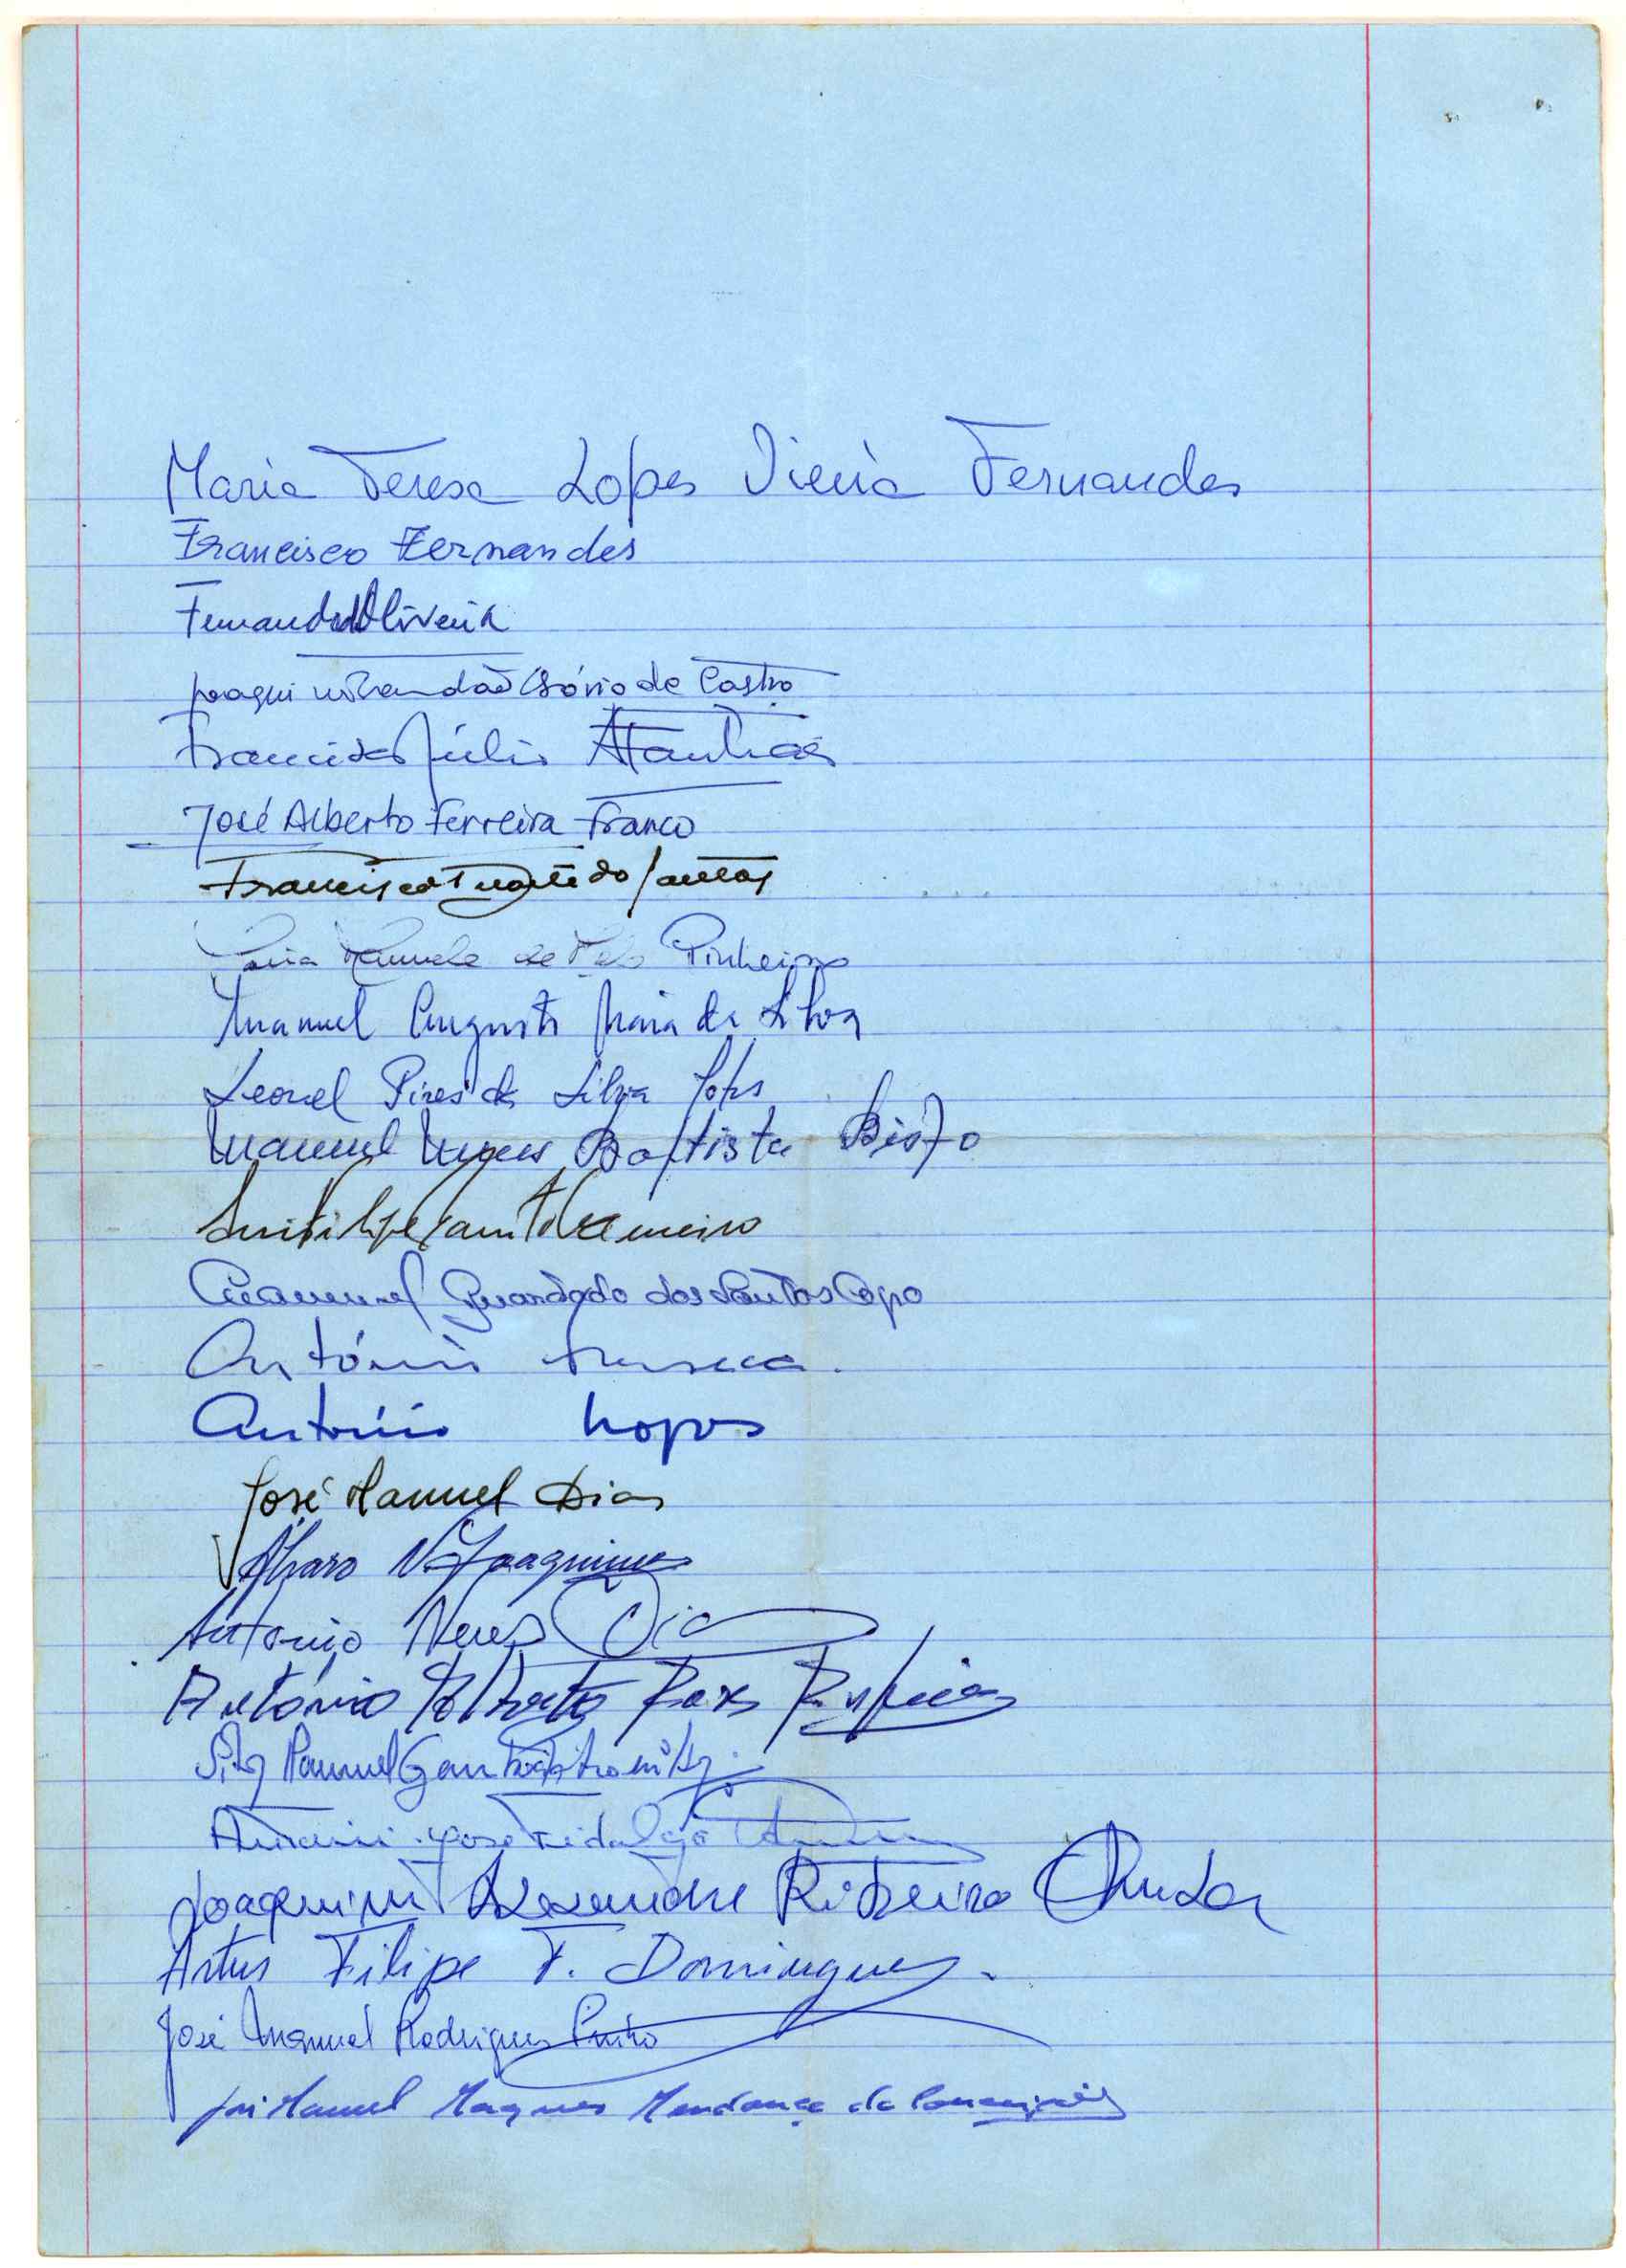 Maria Teresa Lopes Vieira Fernandes
Francisco Fernandes
Fernando Oliveira
Joaquim Brandão Osório de Castro
Francisco Júlio
José Alberto Ferreira Franco
Francisco Duarte do Santos
Maria Manuela de Melo Pinheiro
Manuel Augusto Maia da Silva
Leonel Pires da Silva Lopes
Manuel Nunes Baptista Bispo
Luís Filipe
Manuel Guardado dos Santos Capo
António Fonseca
António Lopes
José Manuel Dias
Álvaro Joaquim
António Neves Dias
António Alberto
Manuel
José Fidalgo
Joaquim Alexandre Ribeiro
Artur Filipe F. Domingues.
José Manuel Rodrigues Pinto
José Manuel Marques Mendonça da Conceição